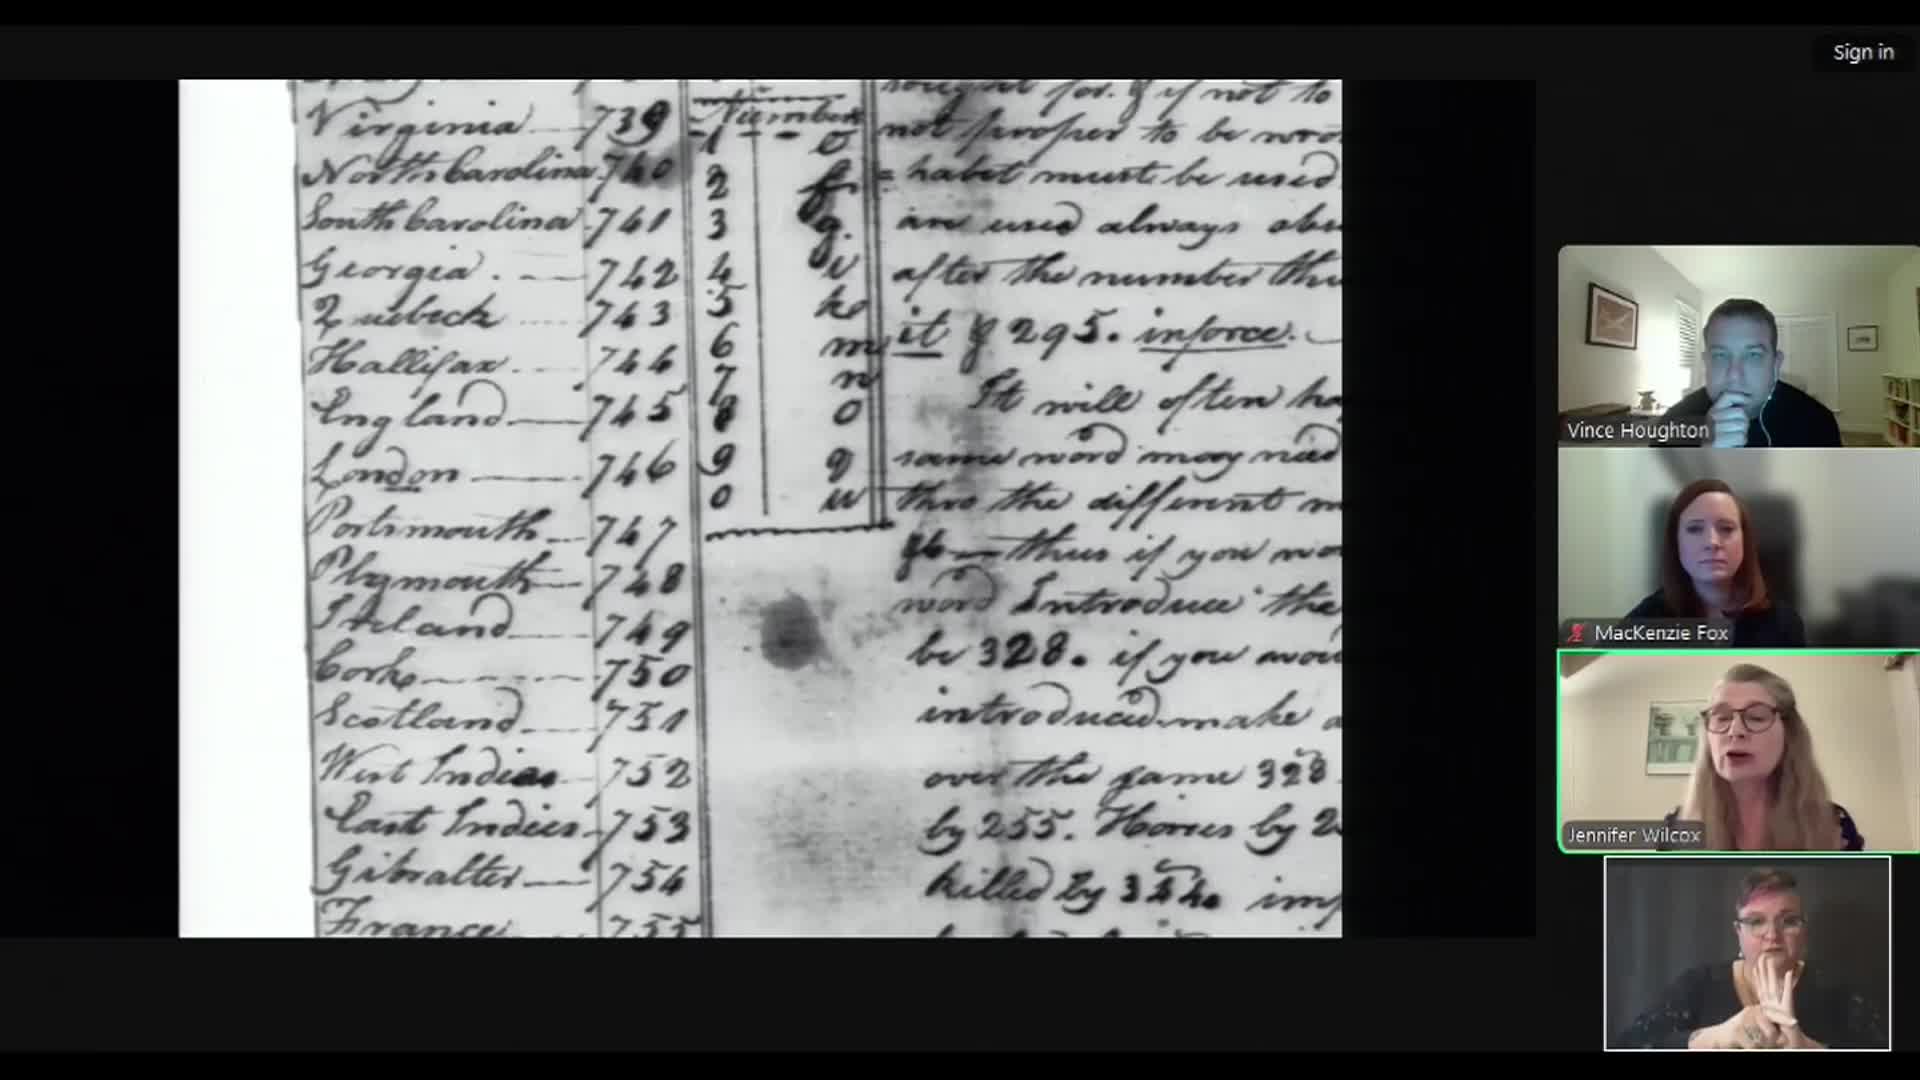 Sign in
Virginia 739
North Carolina 740
South Carolina 741
Georgia 742
Quebeck 743
Hallifax 744
England 745
London 746
Portsmouth 747
Plymouth 748
Ireland 749
Cork 750
Scotland 751
West Indies 752
East Indies 753
Gibralter 754
France 755
Numbers
1 e
2 f
3 g
4 i
5 k
6 m
7 n
8 o
9 q
0 u
sought for. & if not to
not proper to be
habet must be used
are used always
after the number
it & 295. inforce.
It will often
same word may need
thro the different
thus if you
word Introduce the
be 328. if you
introduced make a
over the same 328
by 255. Horses by
killed by 344
Vince Houghton
MacKenzie Fox
Jennifer Wilcox